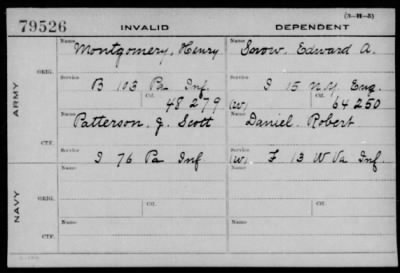 (3-11-3)
79526 INVALID DEPENDENT
Name Name
Montgomery, Henry Edward A.
ORIG. Service Service
B 103 Pa Inf. I 15 N.Y. Eng.
ARMY
Ctf. Ctf.
48 279 (w) 64 250
Name Name
Patterson, J. Scott Daniel Robert
CTF. Service Service
I 76 Pa Inf (w) F 13 W Va Inf.
Name Ctf. Name Ctf.
ORIG.
NAVY
Name Name
CTF.